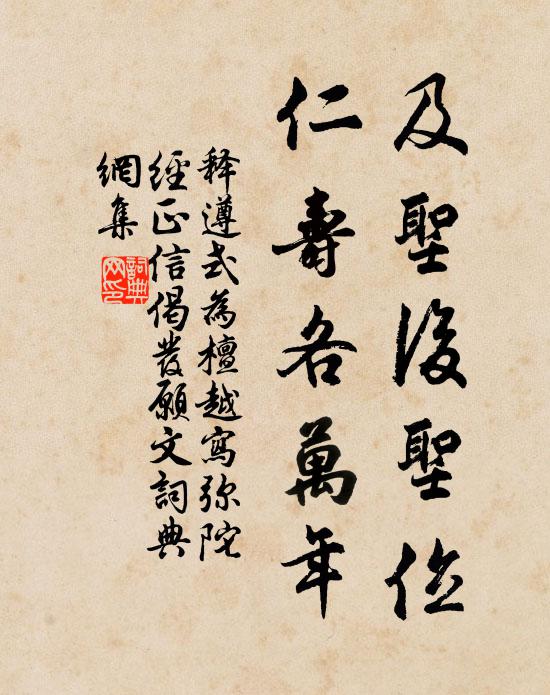 及聖後聖位
仁壽各萬年
释遵式為檀越寫弥陀
經正信偈發願文詞典
網集
詞典網印